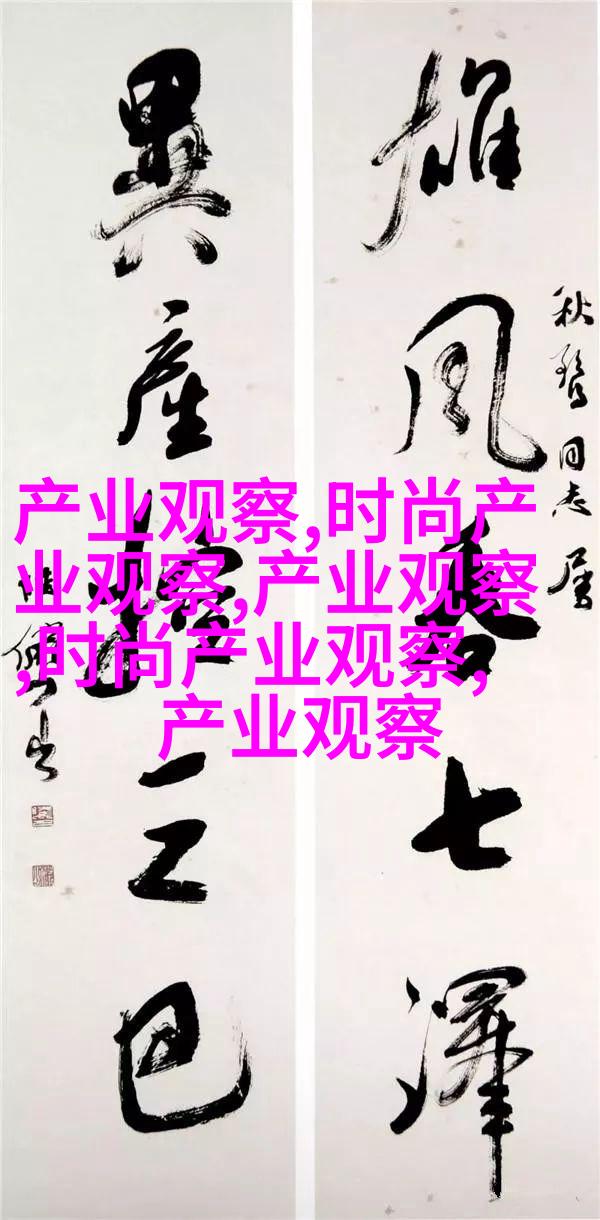 雄風吞七澤
秋鶩同志屬
異産控三巴
产业观察,时尚产
业观察,产业观察
,时尚产业观察,
产业观察